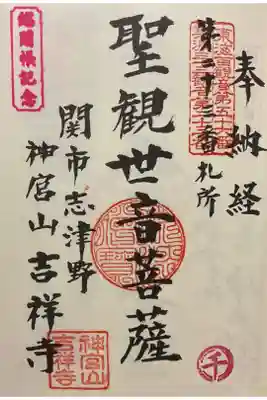 奉納経
第二十三番札所
聖観世音菩薩
関市志津野
神宮山吉祥寺
総開帳記念
神宮山
吉祥寺
千